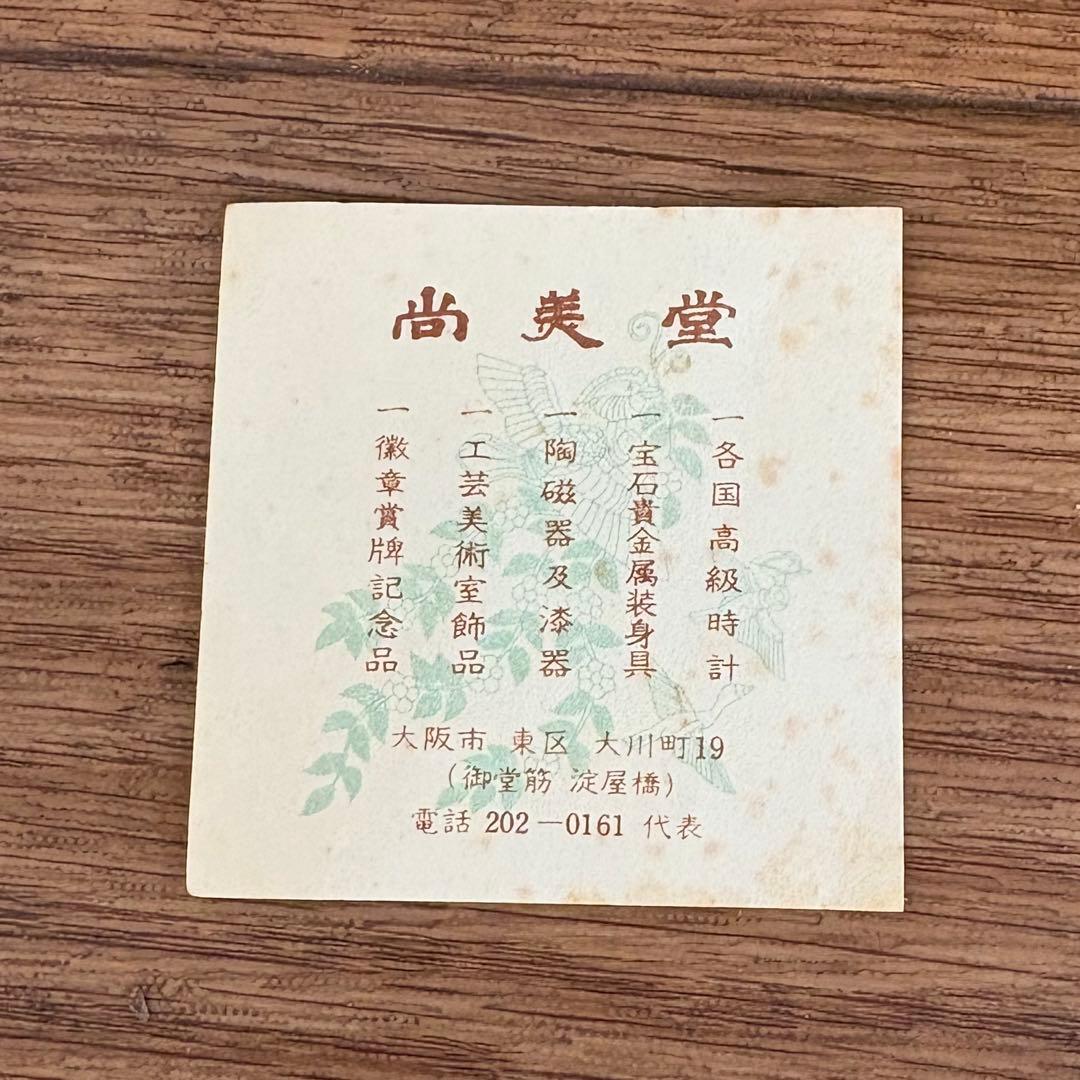 尚美堂
一各国高級時計
一宝石貴金属装身具
一陶磁器及漆器
一工芸美術室飾品
一徽章賞牌記念品
大阪市 東区 大川町19
(御堂筋 淀屋橋)
電話 202—0161 代表